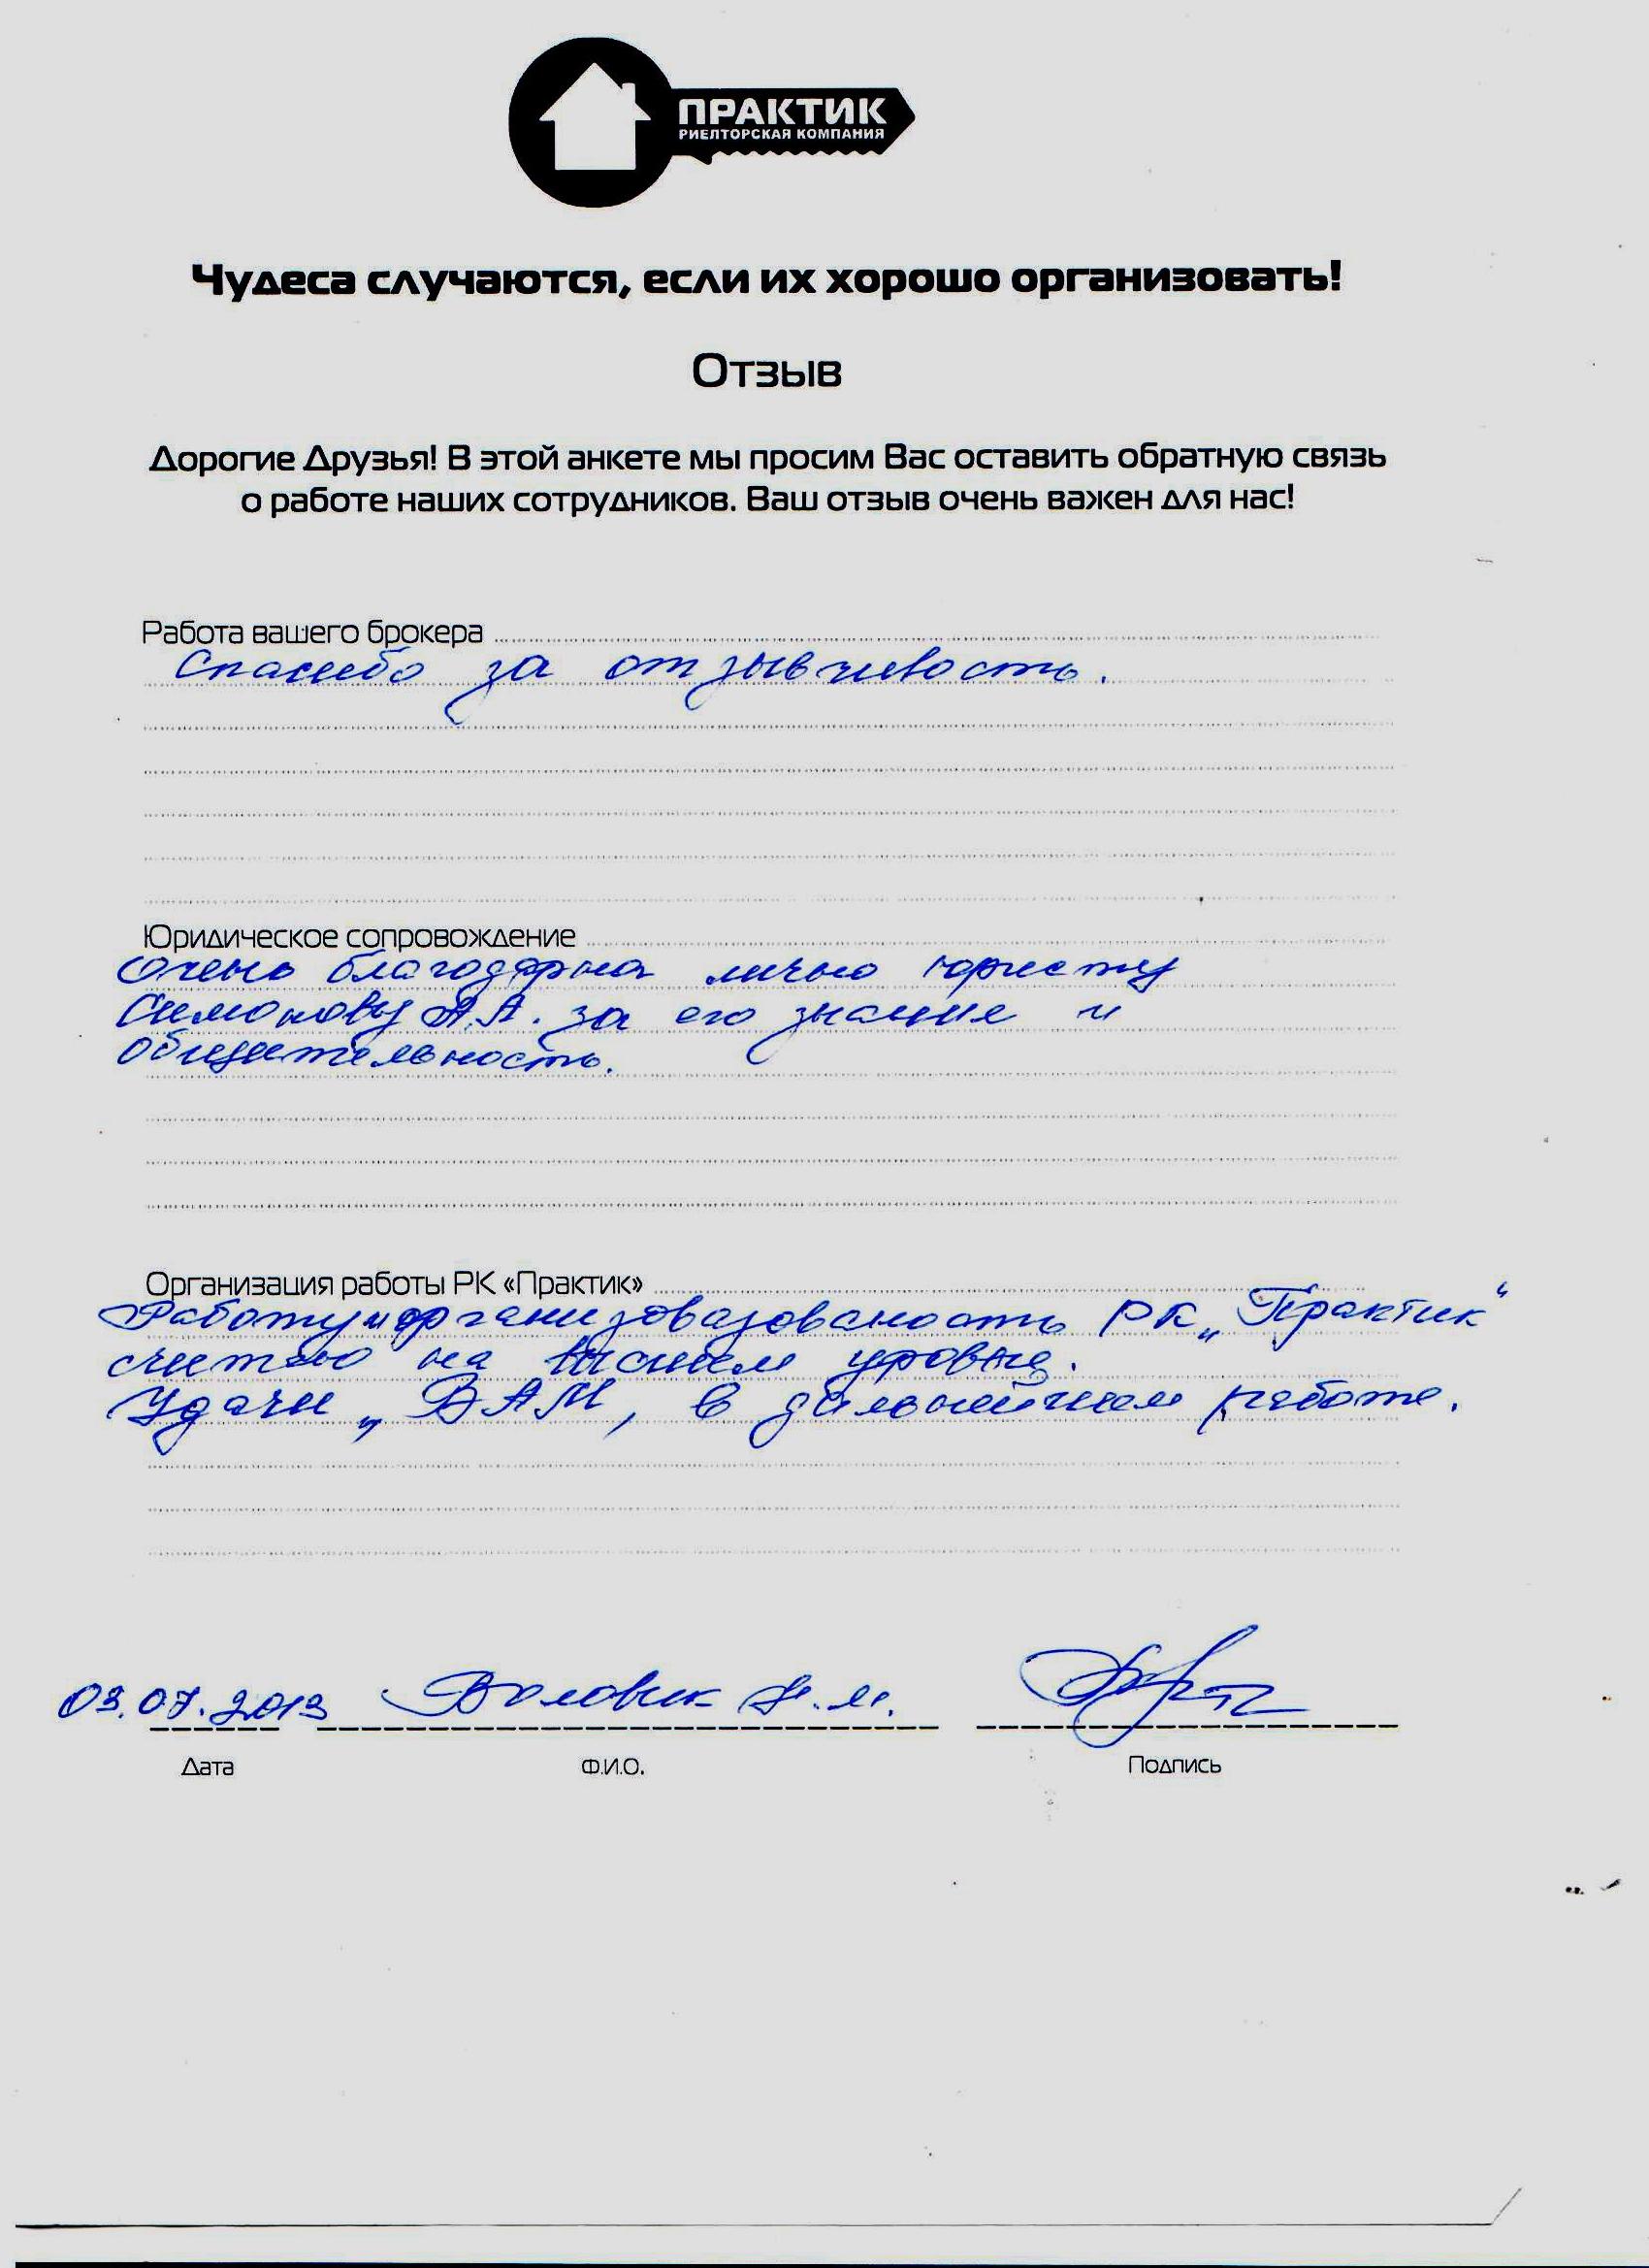 ПРАКТИК
РИЕЛТОРСКАЯ КОМПАНИЯ
Чудеса случаются, если их хорошо организовать!
Отзыв
Дорогие Друзья! В этой анкете мы просим Вас оставить обратную связь
о работе наших сотрудников. Ваш отзыв очень важен для нас!
Работа вашего брокера
Спасибо за отзывчивость.
Юридическое сопровождение
Очень благодарна лично юристу
Симонову А.А. за его знание и
общительность.
Организация работы РК «Практик»
Работу и организовазованость РК „Практик“
считаю на высшем уровне.
Удачи „ВАМ, в дальнейшем работе.
03.07.2013 Воловик Н.М.
Дата Ф.И.О. Подпись